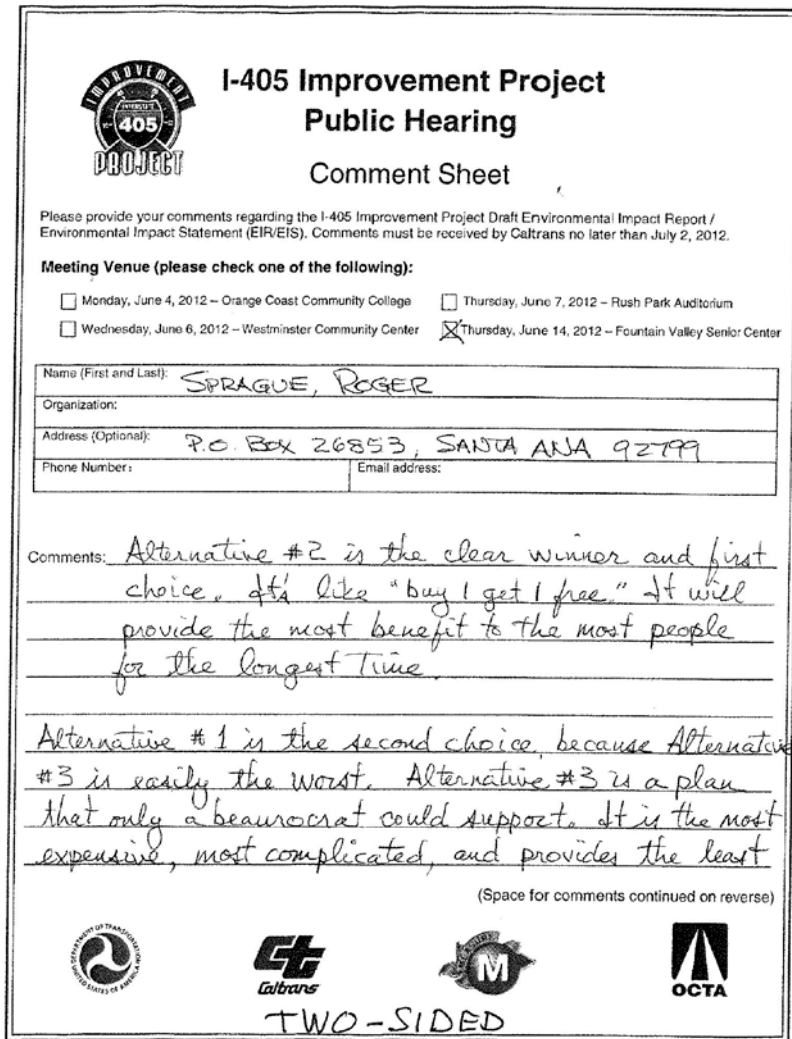 IMPROVEMENT
INTERSTATE
405
PROJECT
I-405 Improvement Project
Public Hearing
Comment Sheet
Please provide your comments regarding the I-405 Improvement Project Draft Environmental Impact Report /
Environmental Impact Statement (EIR/EIS). Comments must be received by Caltrans no later than July 2, 2012.
Meeting Venue (please check one of the following):
Monday, June 4, 2012 – Orange Coast Community College
Thursday, June 7, 2012 – Rush Park Auditorium
Wednesday, June 6, 2012 – Westminster Community Center
Thursday, June 14, 2012 – Fountain Valley Senior Center
Name (First and Last): SPRAGUE, ROGER
Organization:
Address (Optional): P.O. BOX 26853, SANTA ANA 92799
Phone Number:
Email address:
Comments: Alternative #2 is the clear winner and first
choice. It's like "buy 1 get 1 free." It will
provide the most benefit to the most people
for the longest Time.
Alternative #1 is the second choice, because Alternative
#3 is easily the worst. Alternative #3 is a plan
that only a beaurocrat could support. It is the most
expensive, most complicated, and provides the least
(Space for comments continued on reverse)
DEPARTMENT OF TRANSPORTATION
UNITED STATES OF AMERICA
Caltrans
M
OCTA
TWO-SIDED